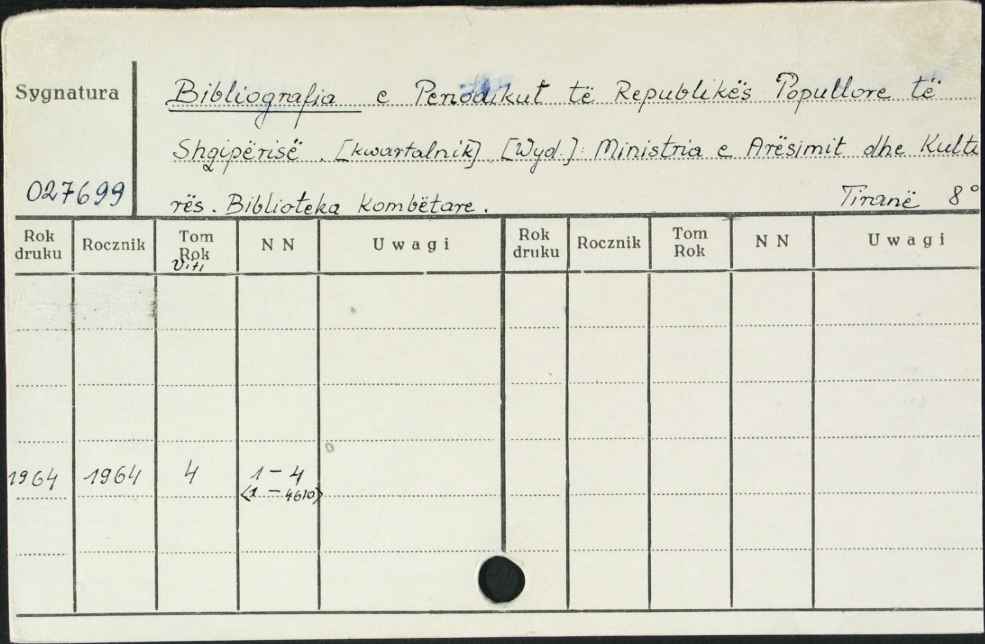 Sygnatura
Bibliografia e Periodikut të Republikës Popullore të
Shqipërisë. [kwartalnik] [Wyd.]: Ministria e Arësimit dhe Kultu
027699
rës. Biblioteka Kombëtare. Tiranë 8°
Rok druku Rocznik Tom Rok Viti N N Uwagi Rok druku Rocznik Tom Rok N N Uwagi
1964 1964 4 1 – 4
<1 – 4610>